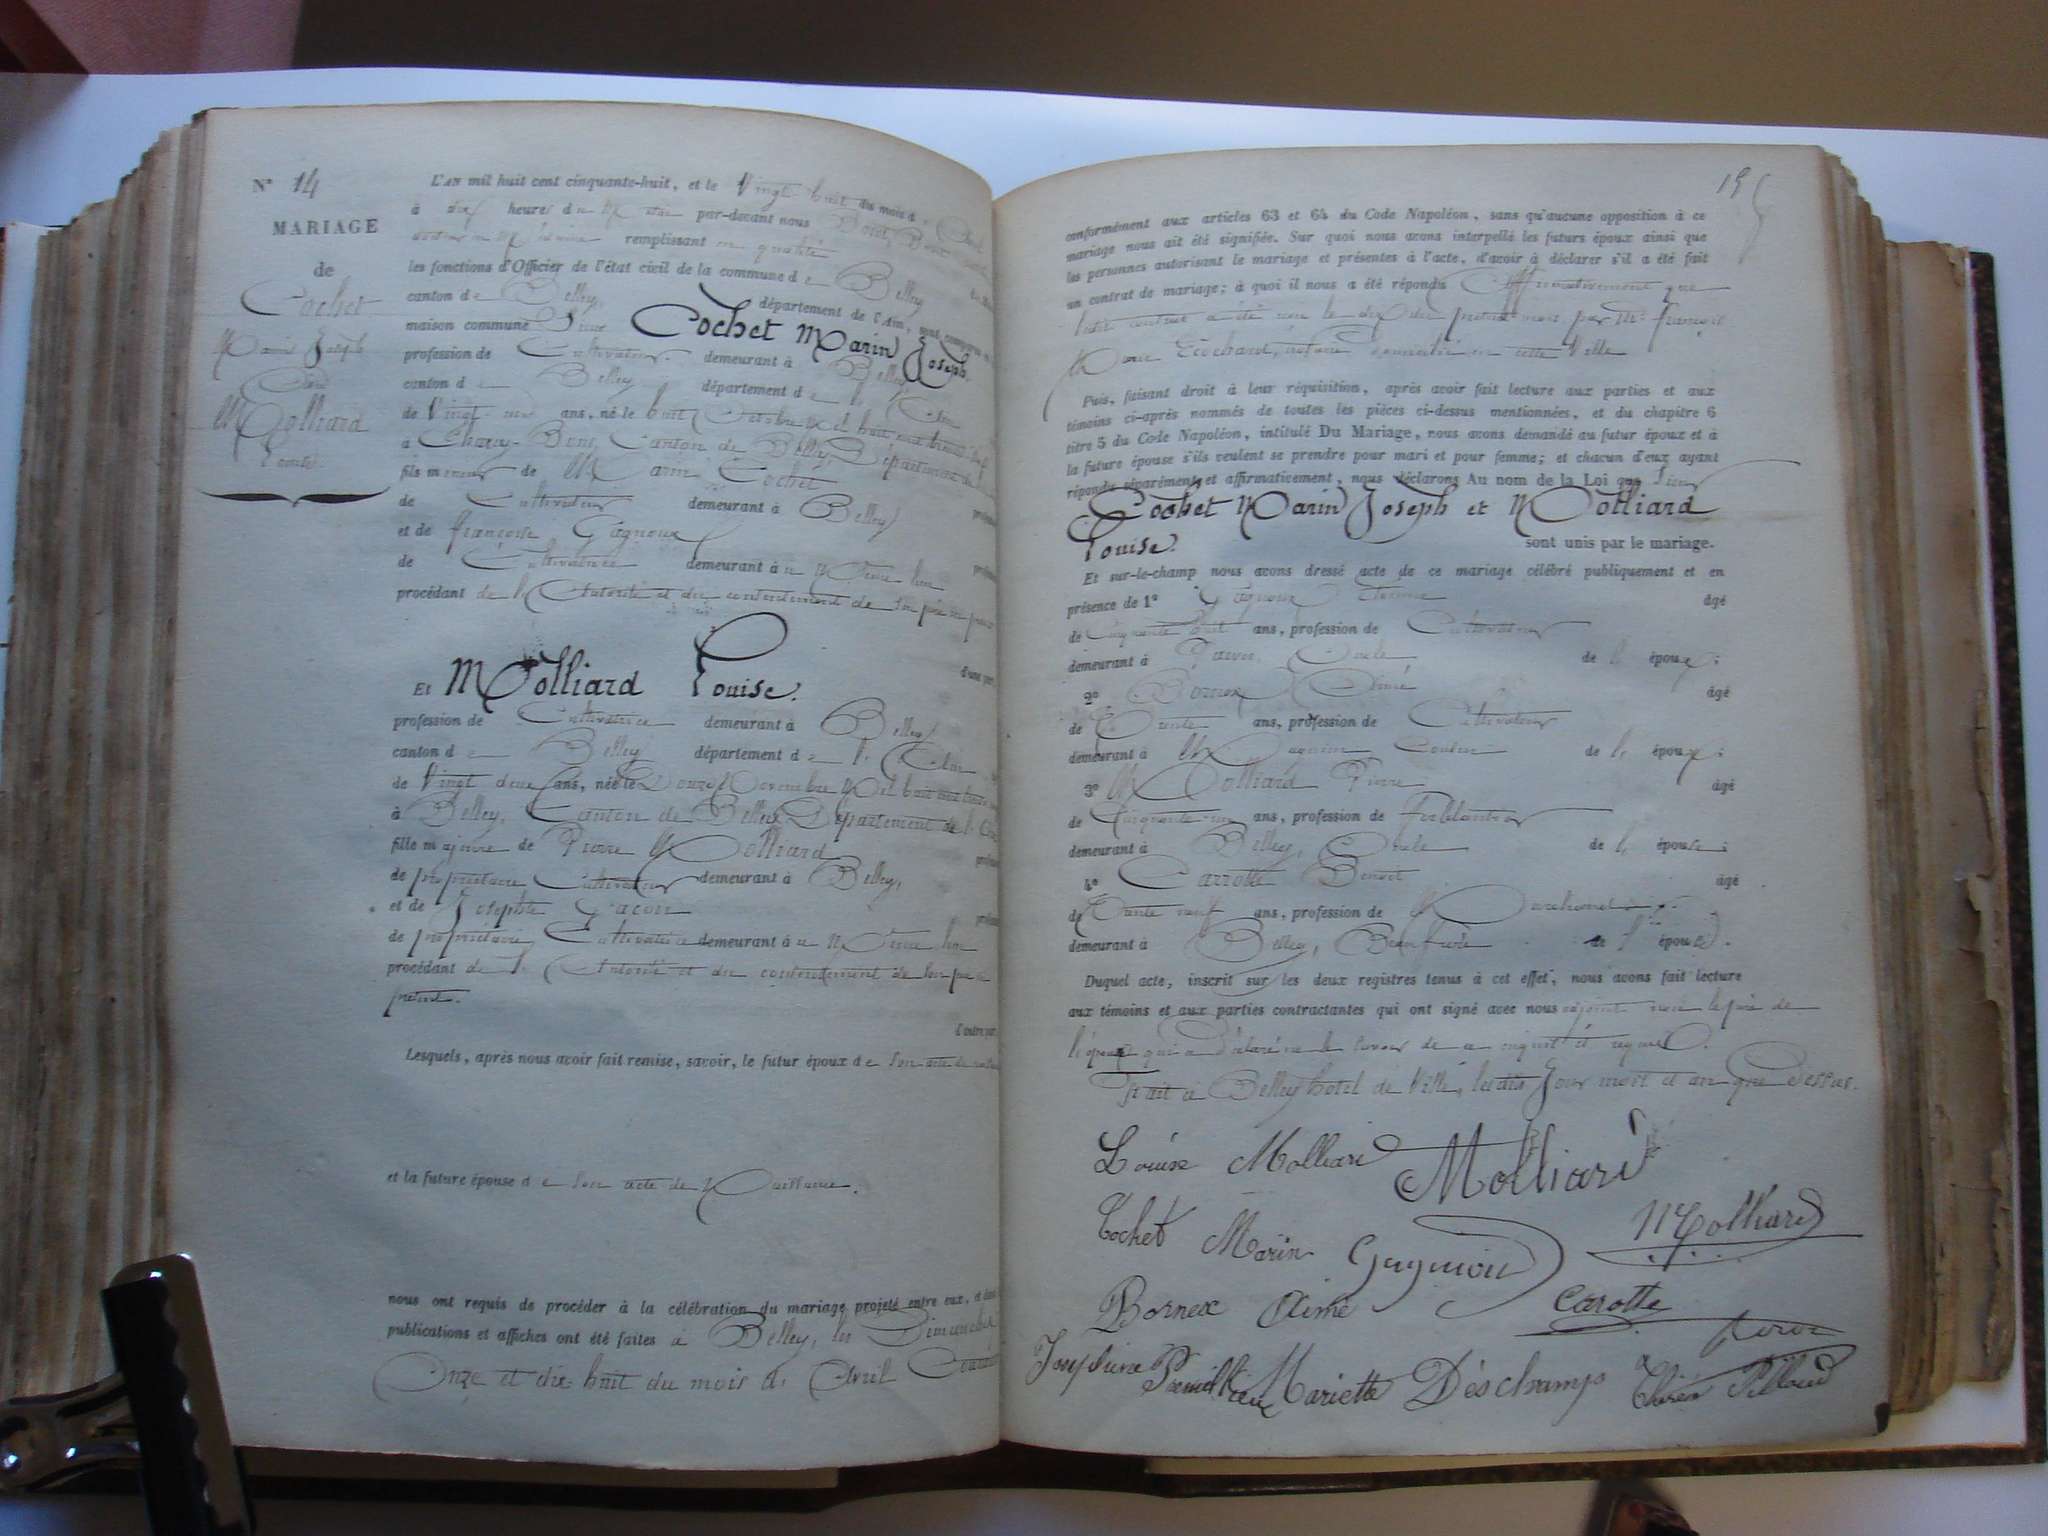 N° 14
MARIAGE
de
Cochet
Marin Joseph
Avec
Molliard
Louise
L'AN mil huit cent cinquante-huit, et le Vingt huit du mois d'Avril
à dix heures du Matin par-devant nous
remplissant en qualité
les fonctions d'Officier de l'état civil de la commune de Belley
canton de Belley département de l'Ain, sont comparus en
maison commune Sieur Cochet Marin Joseph.
profession de Cultivateur demeurant à Belley
canton de Belley département de l'Ain
de Vingt ans, né le huit Octobre Mil huit cent trente
à Charey-Bons, Canton de Belley, Département de l'
fils mineur de Marin Cochet
de Cultivateur demeurant à Belley
et de françoise Gagnoux
de Cultivatrice demeurant au Même lieu
procédant de l'Autorité et du consentement de son père ici présent
d'une part,
Et Molliard Louise.
profession de Cultivatrice demeurant à Belley
canton de Belley département de l'Ain
de Vingt deux ans, née le Douze Novembre Mil huit cent trente
à Belley, Canton de Belley Département de l'Ain
fille majeure de Pierre Molliard
de propriétaire Cultivateur demeurant à Belley,
et de Josephte Gacon
de propriétaire Cultivatrice demeurant au Même lieu
procédant de l'Autorité et du consentement de son père
présent.
l'autre part
Lesquels, après nous avoir fait remise, savoir, le futur époux de son acte de
et la future épouse de son acte de Naissance.
nous ont requis de procéder à la célébration du mariage projeté entre eux, et dont
publications et affiches ont été faites à Belley, les Dimanches
Onze et dix-huit du mois d'Avril Courant
15
conformément aux articles 63 et 64 du Code Napoléon, sans qu'aucune opposition à ce
mariage nous ait été signifiée. Sur quoi nous avons interpellé les futurs époux ainsi que
les personnes autorisant le mariage et présentes à l'acte, d'avoir à déclarer s'il a été fait
un contrat de mariage; à quoi il nous a été répondu Affirmativement que
ledit contrat a été reçu le dix du présent mois par Me françois
Marie Ecochard, notaire domicilié en cette Ville
Puis, faisant droit à leur réquisition, après avoir fait lecture aux parties et aux
témoins ci-après nommés de toutes les pièces ci-dessus mentionnées, et du chapitre 6
titre 5 du Code Napoléon, intitulé Du Mariage, nous avons demandé au futur époux et à
la future épouse s'ils veulent se prendre pour mari et pour femme; et chacun d'eux ayant
répondu séparément et affirmativement, nous déclarons Au nom de la Loi que Sieur
Cochet Marin Joseph et Molliard
Louise. sont unis par le mariage.
Et sur-le-champ nous avons dressé acte de ce mariage célébré publiquement et en
présence de 1° Gagnoux Etienne âgé
de Cinquante huit ans, profession de Cultivateur
demeurant à Oncle de l'époux;
2° Bornex Aimé âgé
de Trente ans, profession de Cultivateur
demeurant à Cousin de l'époux;
3° Molliard Pierre âgé
de Cinquante un ans, profession de Ferblantier
demeurant à Belley, Oncle de l'épouse;
4° Carrotte Benoit âgé
de Trente neuf ans, profession de Marchand
demeurant à Belley, Beau frère de l'épouse.
Duquel acte, inscrit sur les deux registres tenus à cet effet, nous avons fait lecture
aux témoins et aux parties contractantes qui ont signé avec nous adjoint non le père de
l'époux qui a déclaré ne le savoir de ce enquis et requis.
Fait à Belley hôtel de Ville, lesdits Jour mois et an que Dessus.
Louise Molliard Molliard
Cochet Marin Gagnioux Molliard
Bornex Aimé Carotte
Josephine Mariette Déschamps